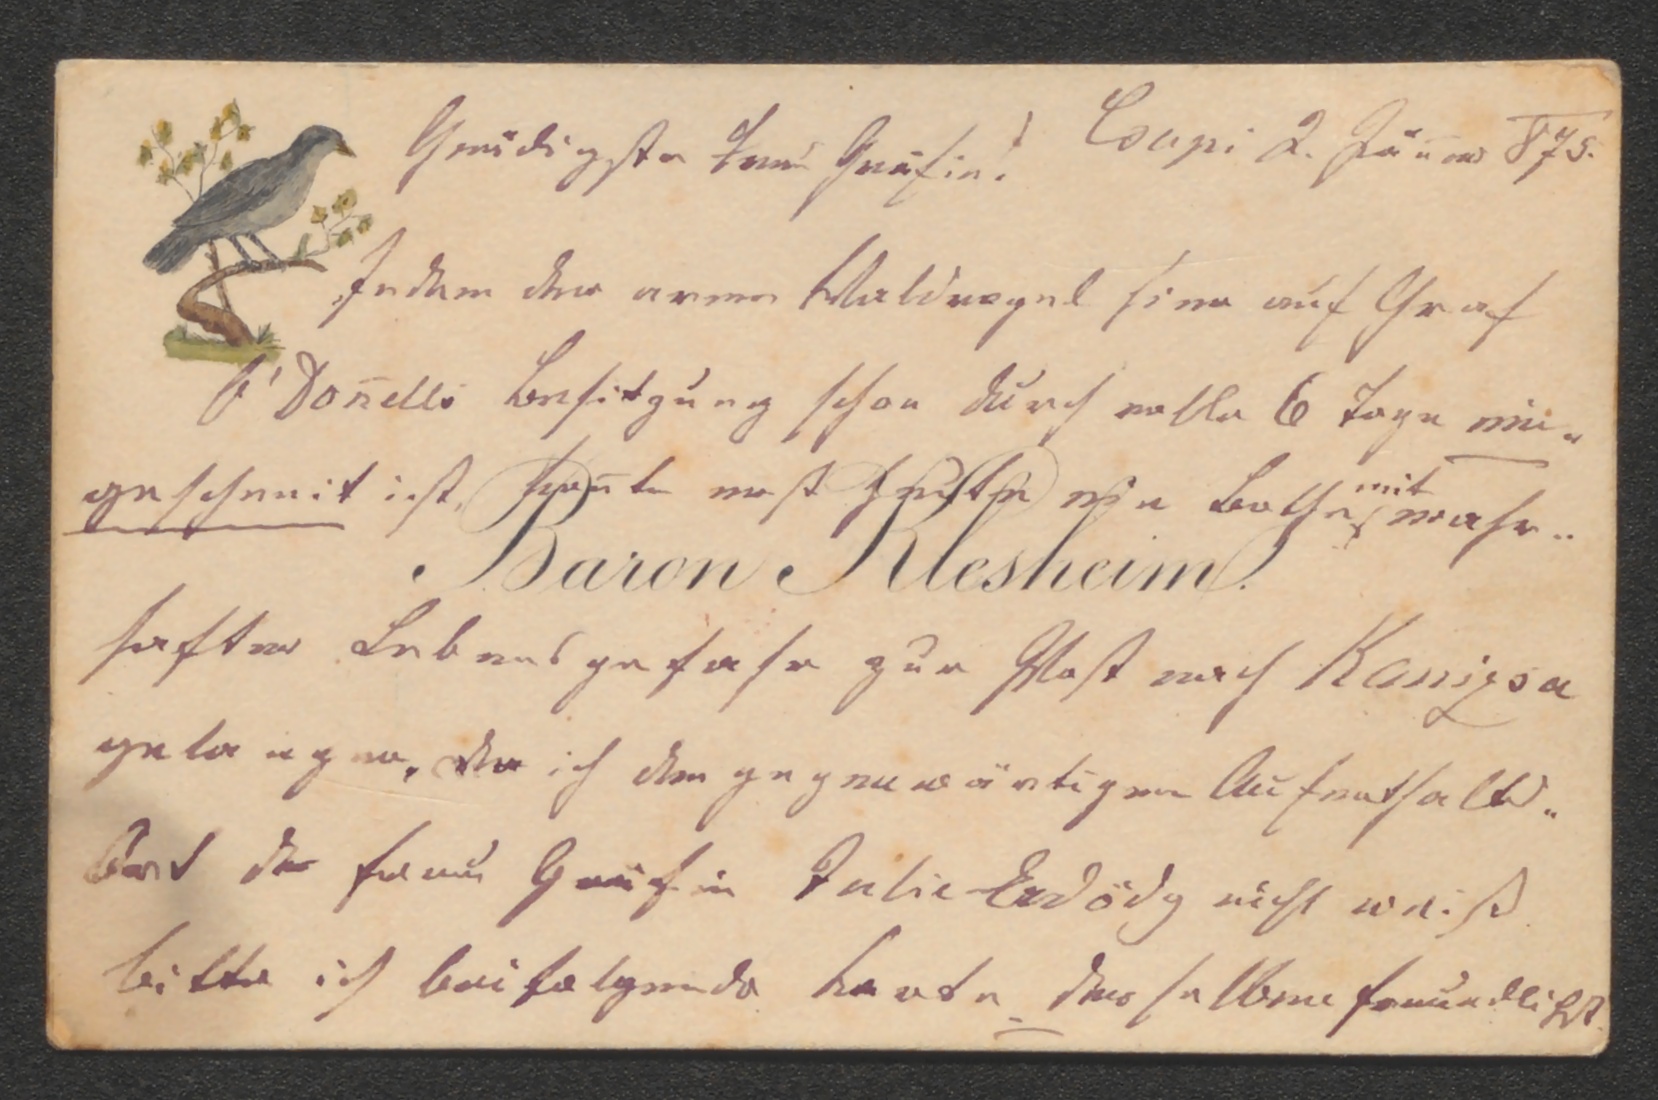 Gnädigste Frau Gräfin! Csapi 2. Jänner 875.
Indem der arme Waldvogel hier auf Graf
O'Donells Besitzung schon durch volle 6 Tage ein-
geschneit ist, konnte erst heute ein Bothe mit wahr-
Baron Klesheim.
hafter Lebensgefahr zur Post nach Kanizsa
gelangen, da ich den gegenwärtigen Aufenthalts-
Ort der Frau Gräfin Julie Erdödy nicht weiß
bitte ich beifolgende Karte derselben freundlichst